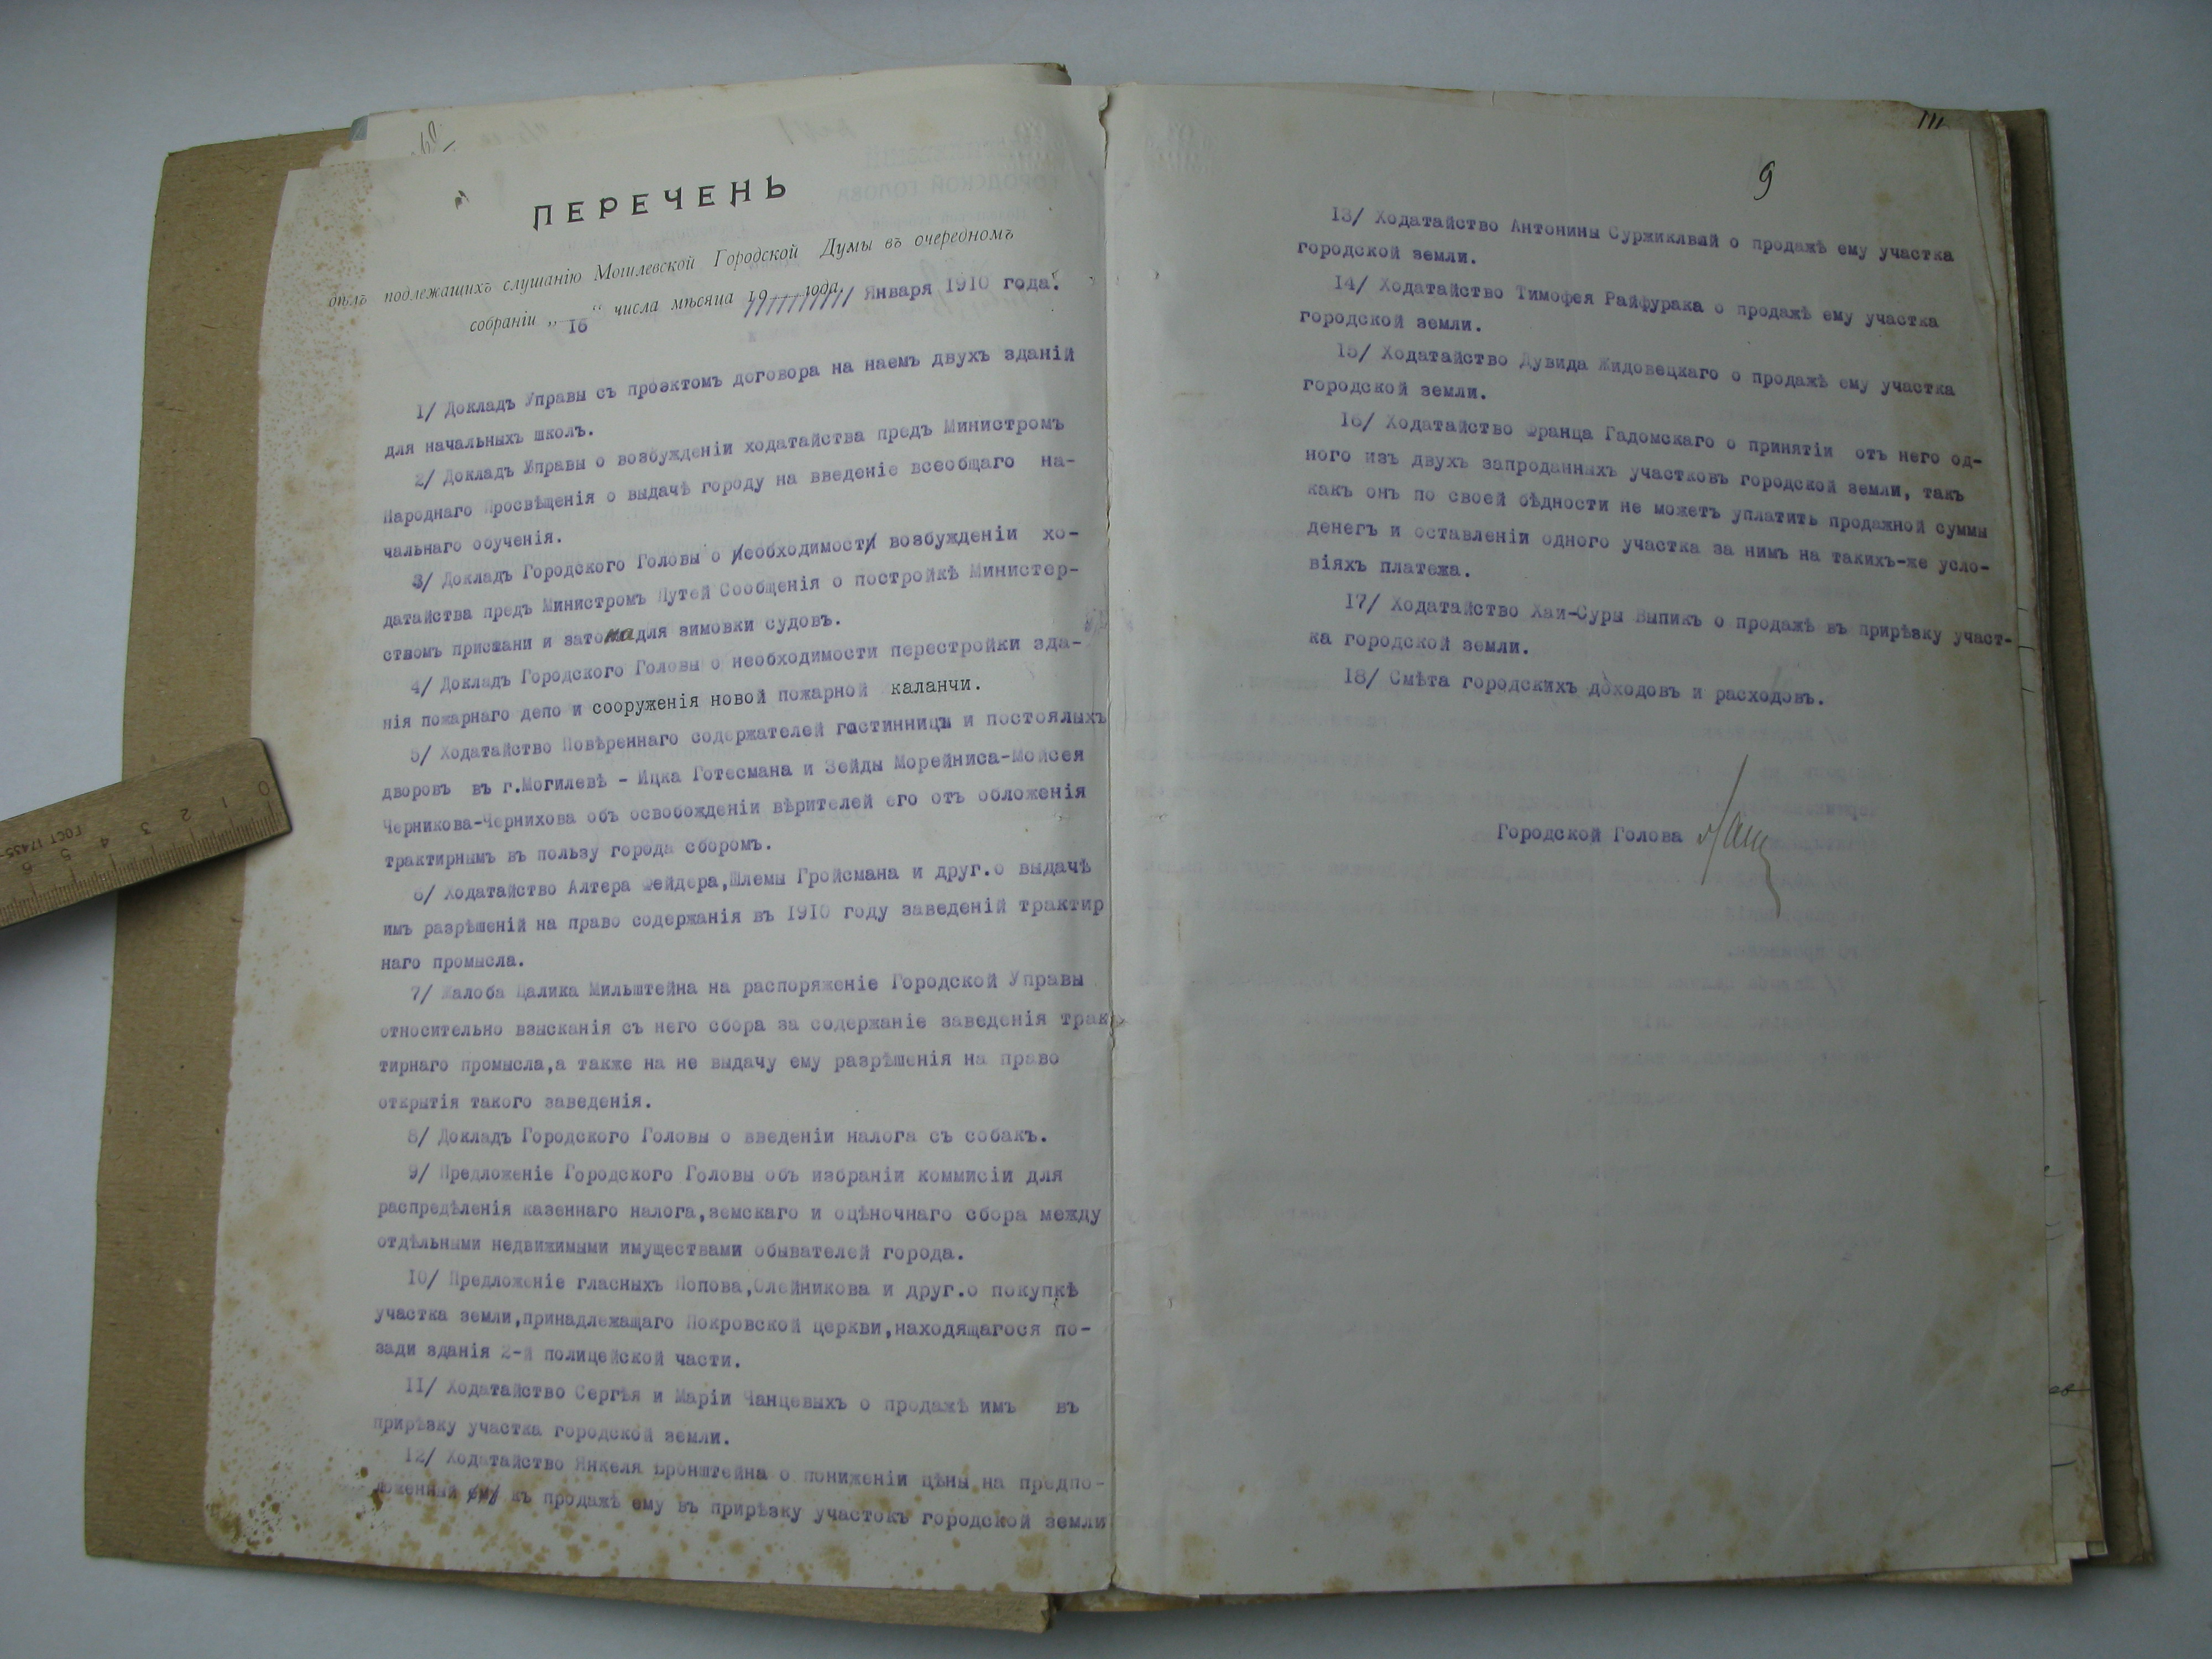 ПЕРЕЧЕНЬ
дѣлъ подлежащихъ слушанію Могилевской Городской Думы въ очередномъ
собраніи „ 16 “ числа мѣсяца 19 года. Января 1910 года.
1/ Докладъ Управы съ проэктомъ договора на наемъ двухъ зданій
для начальныхъ школъ.
2/ Докладъ Управы о возбужденіи ходатайства предъ Министромъ
Народнаго Просвѣщенія о выдачѣ городу на введеніе всеобщаго на-
чальнаго обученія.
3/ Докладъ Городского Головы о необходимости возбужденіи хо-
датайства предъ Министромъ Путей Сообщенія о постройкѣ Министер-
ствомъ пристани и затона для зимовки судовъ.
4/ Докладъ Городского Головы о необходимости перестройки зда-
нія пожарнаго депо и сооруженія новой пожарной каланчи.
5/ Ходатайство Повѣреннаго содержателей гостинницы и постоялыхъ
дворовъ въ г.Могилевѣ - Ицка Готесмана и Зейды Морейниса-Мойсея
Черникова-Чернихова объ освобожденіи вѣрителей его отъ обложенія
трактирнымъ въ пользу города сборомъ.
6/ Ходатайство Алтера Фейдера,Шлемы Гройсмана и друг.о выдачѣ
имъ разрѣшеній на право содержанія въ 1910 году заведеній трактир
наго промысла.
7/ Жалоба Цалика Мильштейна на распоряженіе Городской Управы
относительно взысканія съ него сбора за содержаніе заведенія трак
тирнаго промысла,а также на не выдачу ему разрѣшенія на право
открытія такого заведенія.
8/ Докладъ Городского Головы о введеніи налога съ собакъ.
9/ Предложеніе Городского Головы объ избраніи коммисіи для
распредѣленія казеннаго налога,земскаго и оцѣночнаго сбора между
отдѣльными недвижимыми имуществами обывателей города.
10/ Предложеніе гласныхъ Попова,Олейникова и друг.о покупкѣ
участка земли,принадлежащаго Покровской церкви,находящагося по-
зади зданія 2-й полицейской части.
11/ Ходатайство Сергѣя и Маріи Чанцевыхъ о продажѣ имъ въ
прирѣзку участка городской земли.
12/ Ходатайство Янкеля Бронштейна о пониженіи цѣны на предпо-
ложенный ему къ продажѣ ему въ прирѣзку участокъ городской земли
9
13/ Ходатайство Антонины Суржиклвый о продажѣ ему участка
городской земли.
14/ Ходатайство Тимофея Райфурака о продажѣ ему участка
городской земли.
15/ Ходатайство Дувида Жидовецкаго о продажѣ ему участка
городской земли.
16/ Ходатайство Франца Гадомскаго о принятіи отъ него од-
ного изъ двухъ запроданныхъ участковъ городской земли, такъ
какъ онъ по своей бѣдности не можетъ уплатить продажной суммы
денегъ и оставленіи одного участка за нимъ на такихъ-же усло-
віяхъ платежа.
17/ Ходатайство Хаи-Суры Выпикъ о продажѣ въ прирѣзку участ-
ка городской земли.
18/ Смѣта городскихъ доходовъ и расходовъ.
Городской Голова
0 1 2 3 4 5 6
ГОСТ 17435-